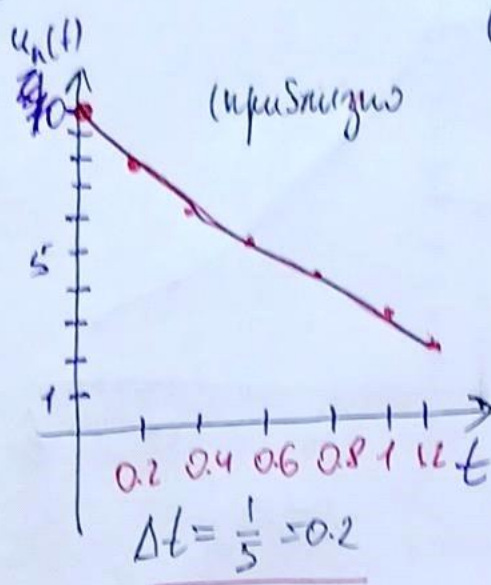 uₙ(t)
(приблизно
10
5
1
0.2 0.4 0.6 0.8 1 1.2 t
Δt = 1/5 = 0.2